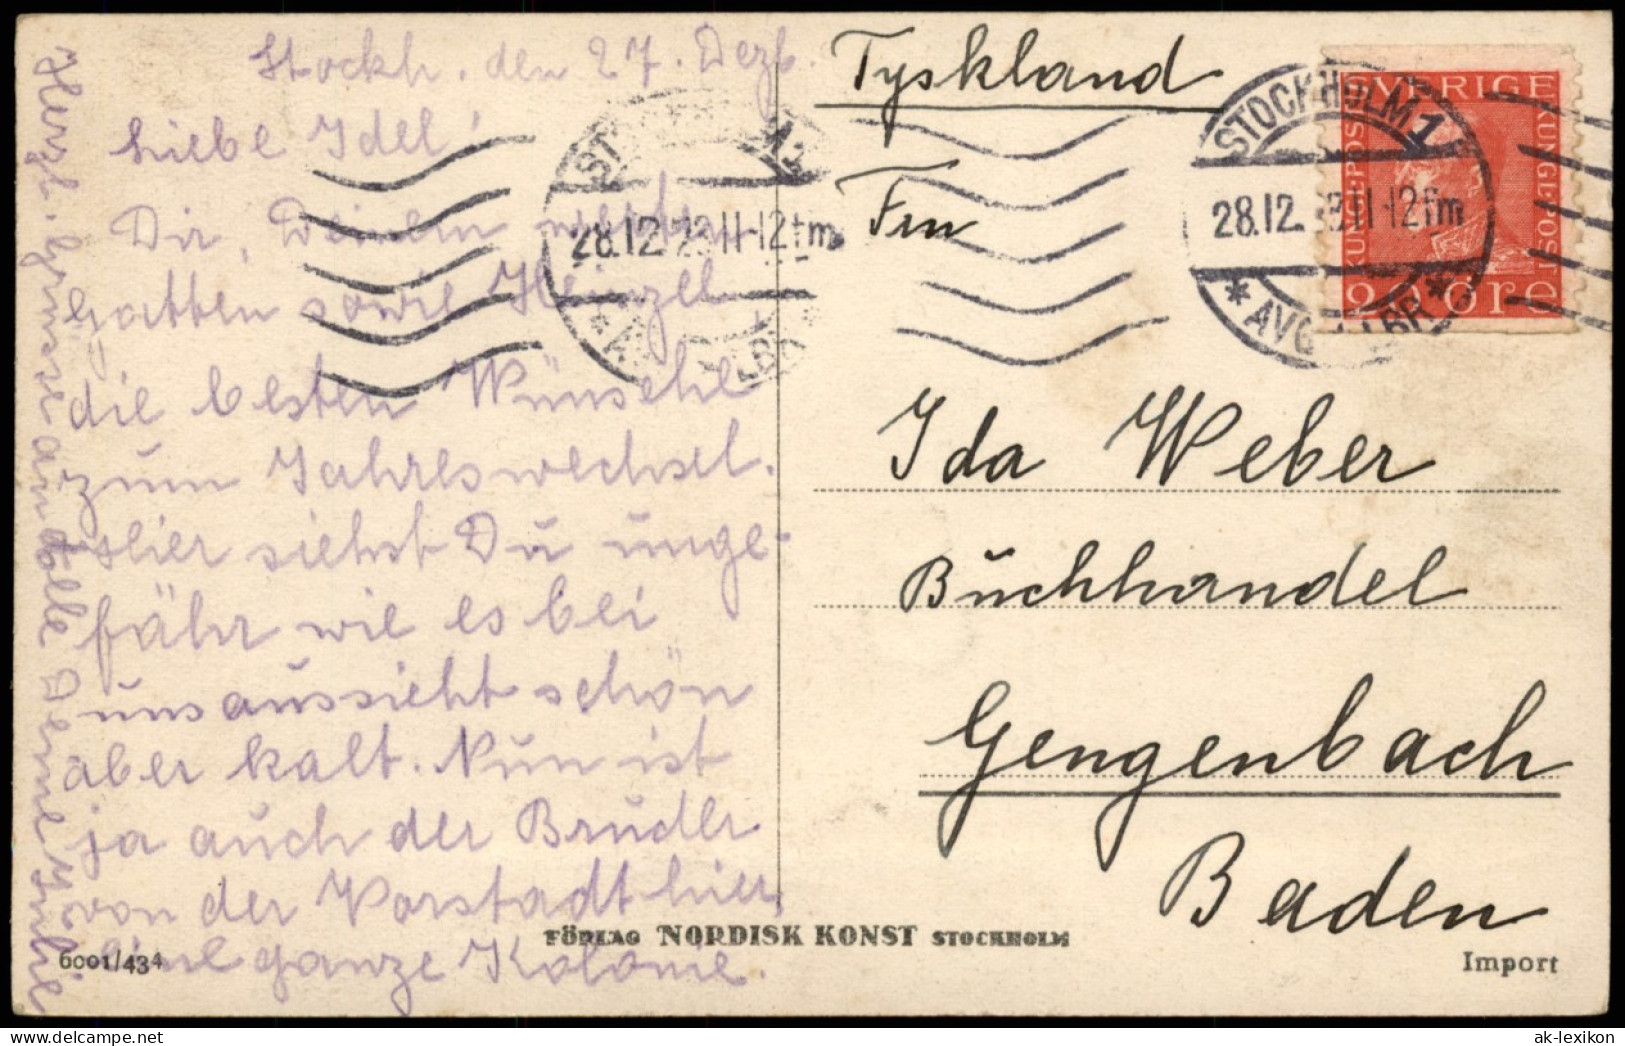 Stockh. den 27. Dezb.
Liebe Idel!
Dir, Deinem
Gatten sowie Heinzel
die besten Wünsche
zum Jahreswechsel.
Hier siehst Du unge-
fähr wie es bei
uns aussieht schön
aber kalt. Nun ist
ja auch der Bruder
von der Vorstadt hier,
eine ganze Kolonie.
Herzl. Grüsse an alle Deine
Tyskland
Frn
STOCKHOLM 1
28.12. 11-12 fm
* AVG. *
28.12. 23 11-12 fm
SVERIGE
KUNGL. POST
KUNGL. POST
20 ÖRE
Ida Weber
Buchhandel
Gengenbach
Baden
FÖRLAG NORDISK KONST STOCKHOLM
6001/434
Import
ak-lexikon